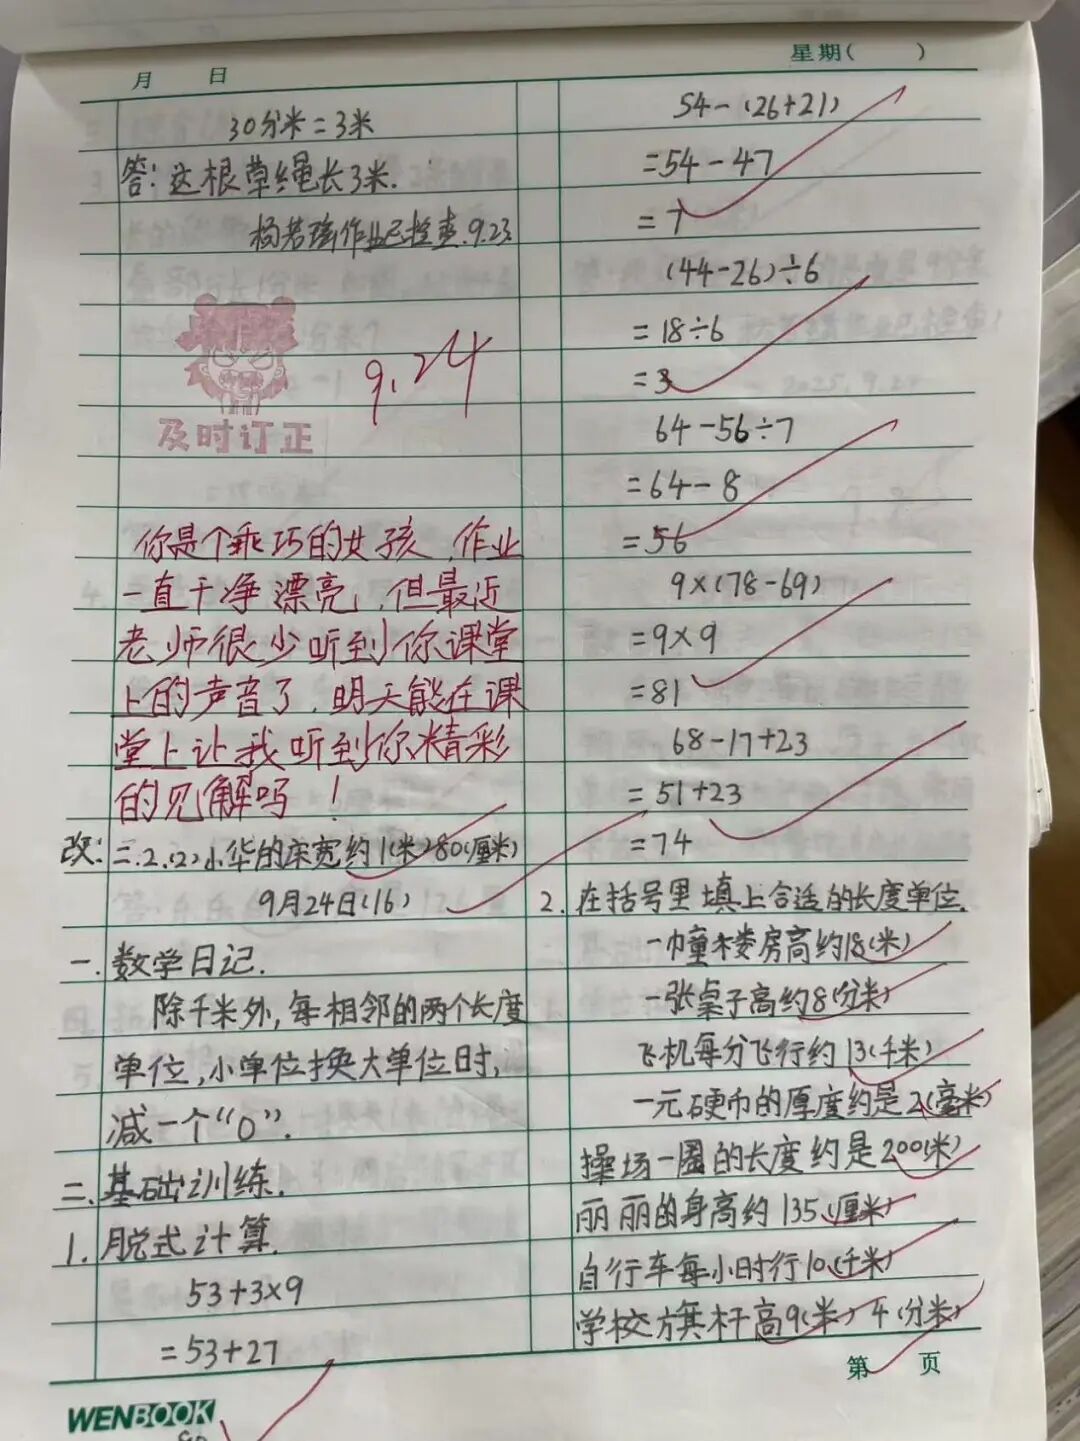 月 日
星期( )
30分米=3米
答:这根草绳长3米.
杨若瑜作业已检查.9.23
9.24
及时订正
你是个乖巧的女孩,作业
一直干净漂亮,但最近
老师很少听到你课堂
上的声音了,明天能在课
堂上让我听到你精彩
的见解吗!
改:二.2.(2)小华的床宽约1(米)80(厘米)
9月24日(16)
一.数学日记.
除千米外,每相邻的两个长度
单位,小单位换大单位时,
减一个“0”.
二.基础训练.
1.脱式计算.
53+3×9
=53+27
54-(26+21)
=54-47
=7
(44-26)÷6
=18÷6
=3
64-56÷7
=64-8
=56
9×(78-69)
=9×9
=81
68-17+23
=51+23
=74
2.在括号里填上合适的长度单位.
一幢楼房高约18(米)
一张桌子高约8(分米)
飞机每分飞行约13(千米)
一元硬币的厚度约是2(毫米)
操场一圈的长度约是200(米)
丽丽的身高约135(厘米)
自行车每小时行10(千米)
学校旗杆高9(米)4(分米)
第 页
WENBOOK